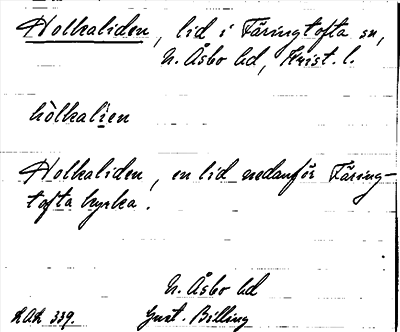 Holkaliden, lid i Färingtofta sn,
N. Åsbo hd, Krist. l.
hòlkalien
Holkaliden, en lid nedanför Färing-
tofta kyrka.
N. Åsbo hd
RAÄ 339. Gust. Billing